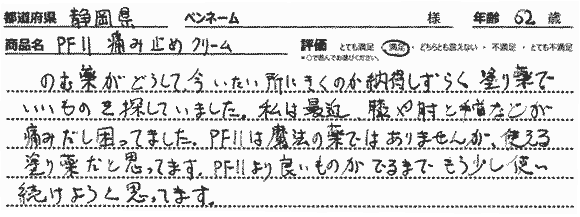 都道府県 静岡県 ペンネーム 様 年齢 62 歳
商品名 PFII 痛み止めクリーム 評価 とても満足 ・ 満足 ・ どちらとも言えない ・ 不満足 ・ とても不満足
*○で囲んでお選びください。
のむ薬がどうして、今いたい所にきくのか納得しずらく 塗り薬で
いいものを探していました。私は最近、膝や肘と指などが
痛みだし困ってました。PFIIは魔法の薬ではありませんが、使える
塗り薬だと思ってます。PFIIより良いものがでるまでもう少し使い
続けようく思ってます。